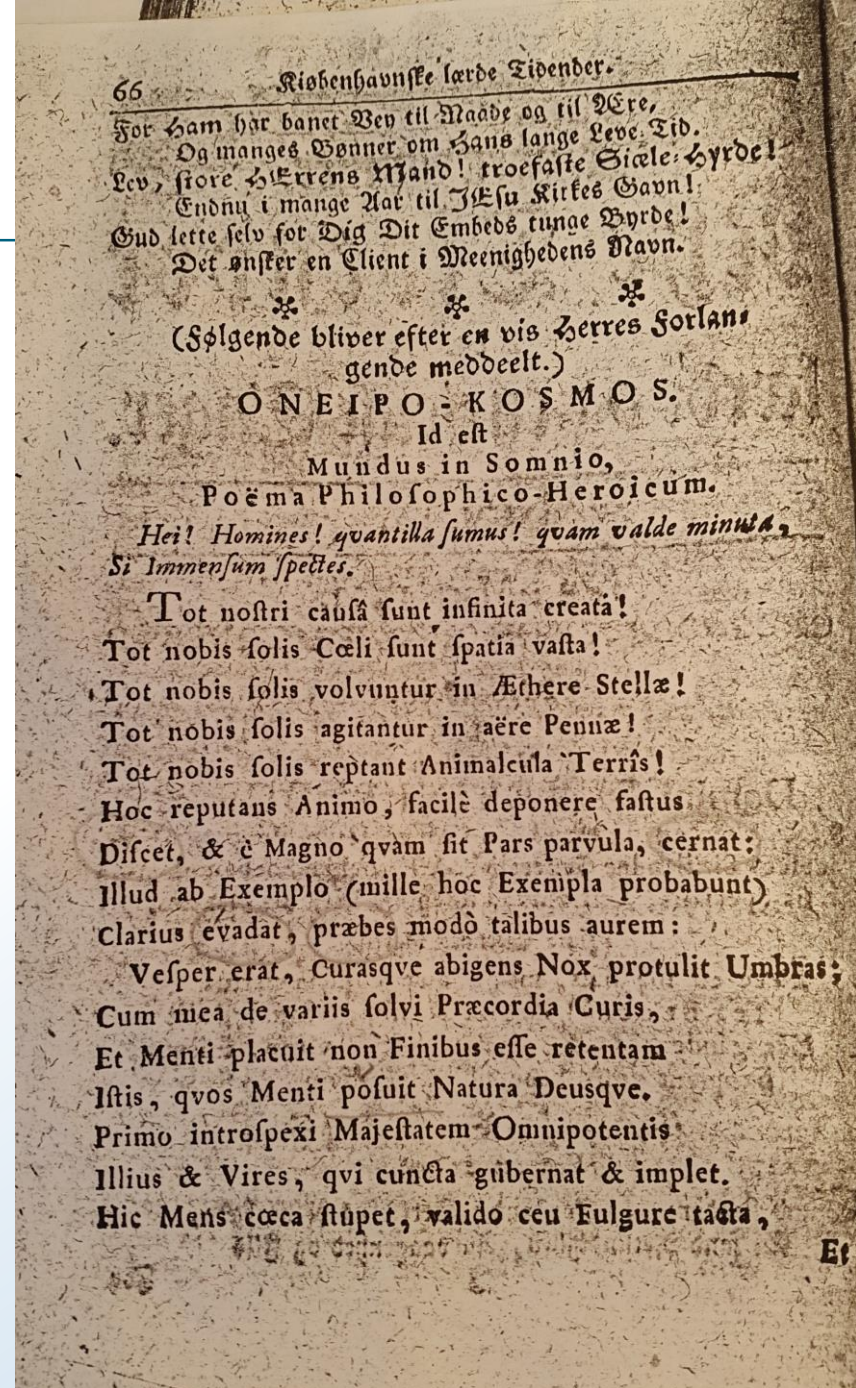 66 Kiøbenhavnſke lærde Tidender.
For Ham har banet Vey til Naade og til Ære,
Og manges Bønner om Hans lange Leve-Tid.
Lev, ſtore HErrens Mand! troefaſte Siæle-Hyrde!
Endnu i mange Aar til JEſu Kirkes Gavn!
Gud lette ſelv for Dig Dit Embeds tunge Byrde!
Det ønſker en Client i Meenighedens Navn.
(Følgende bliver efter en vis Herres Forlan-
gende meddeelt.)
ONEIPO-KOSMOS.
Id eſt
Mundus in Somnio,
Poëma Philoſophico-Heroicum.
Hei! Homines! qvantilla ſumus! qvam valde minuta,
Si Immenſum ſpectes.
Tot noſtri cauſâ ſunt infinita creata!
Tot nobis ſolis Cœli ſunt ſpatia vaſta!
Tot nobis ſolis volvuntur in Æthere Stellæ!
Tot nobis ſolis agitantur in aëre Pennæ!
Tot nobis ſolis reptant Animalcula Terrîs!
Hoc reputans Animo, facilè deponere faſtus
Diſcet, & è Magno qvàm ſit Pars parvula, cernat:
Illud ab Exemplo (mille hoc Exempla probabunt)
Clarius evadat, præbes modò talibus aurem:
Veſper erat, Curasqve abigens Nox protulit Umbras;
Cum mea de variis ſolvi Præcordia Curis,
Et Menti placuit non Finibus eſſe retentam
Iſtis, qvos Menti poſuit Natura Deusqve.
Primo introſpexi Majeſtatem Omnipotentis
Illius & Vires, qvi cuncta gubernat & implet.
Hic Mens cœca ſtupet, valido ceu Fulgure tacta,
Et